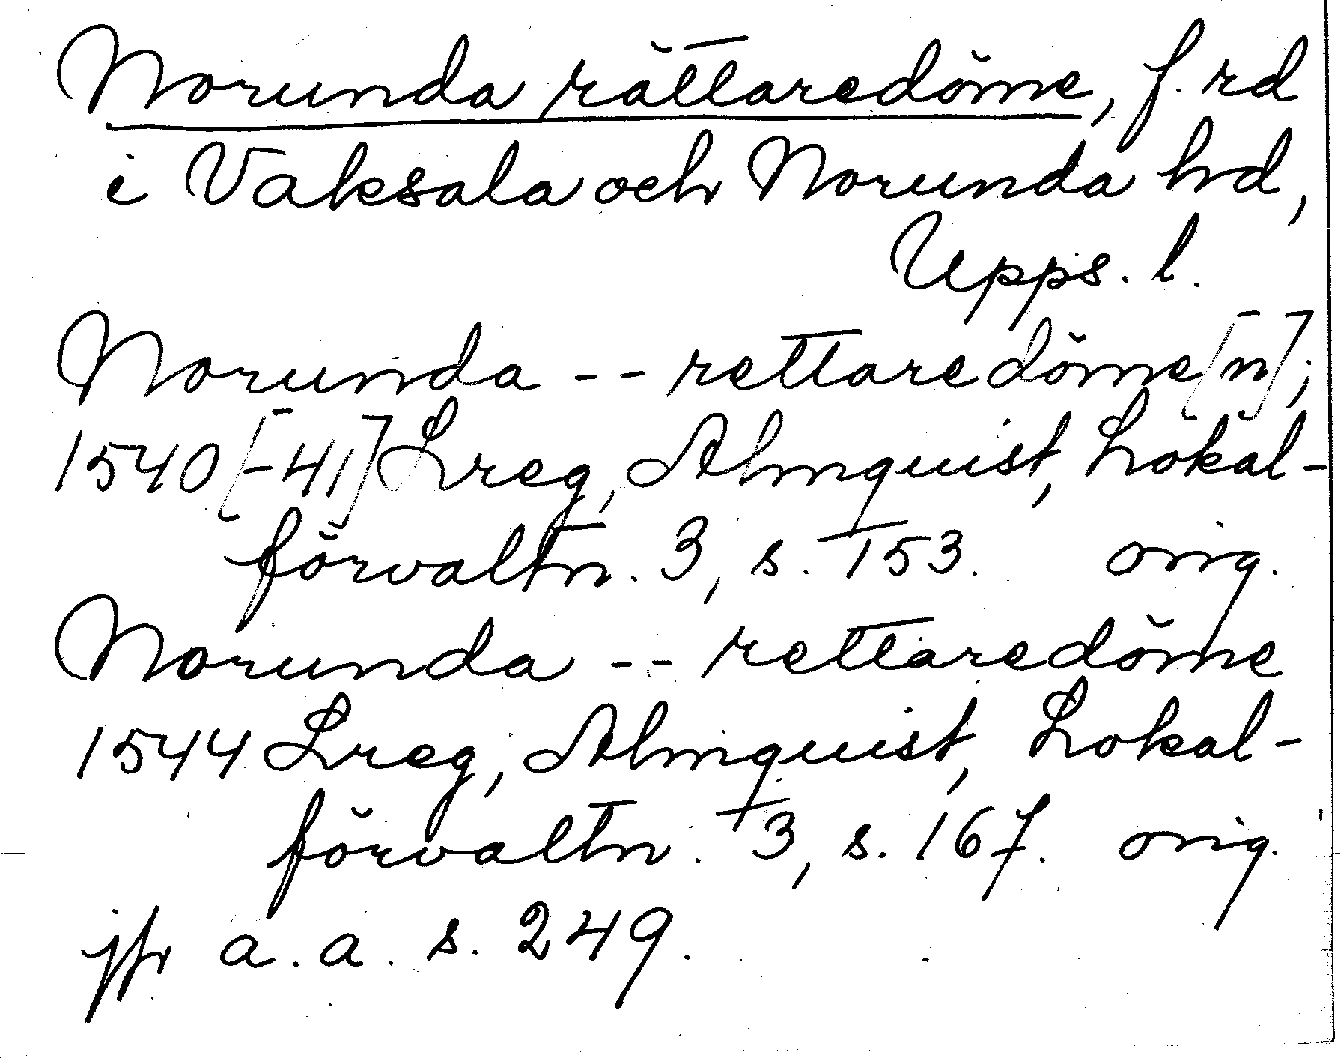 Norunda rättaredöme, f.rd
i Vaksala och Norunda hd,
Upps. l.
Norunda -- rettaredöme[n];
1540[-41] Lreg, Almquist, Lokal-
förvaltn. 3, s. 153. orig.
Norunda -- rettaredöme
1544 Lreg, Almquist, Lokal-
förvaltn. 3, s. 167. orig.
jfr a.a. s. 249.